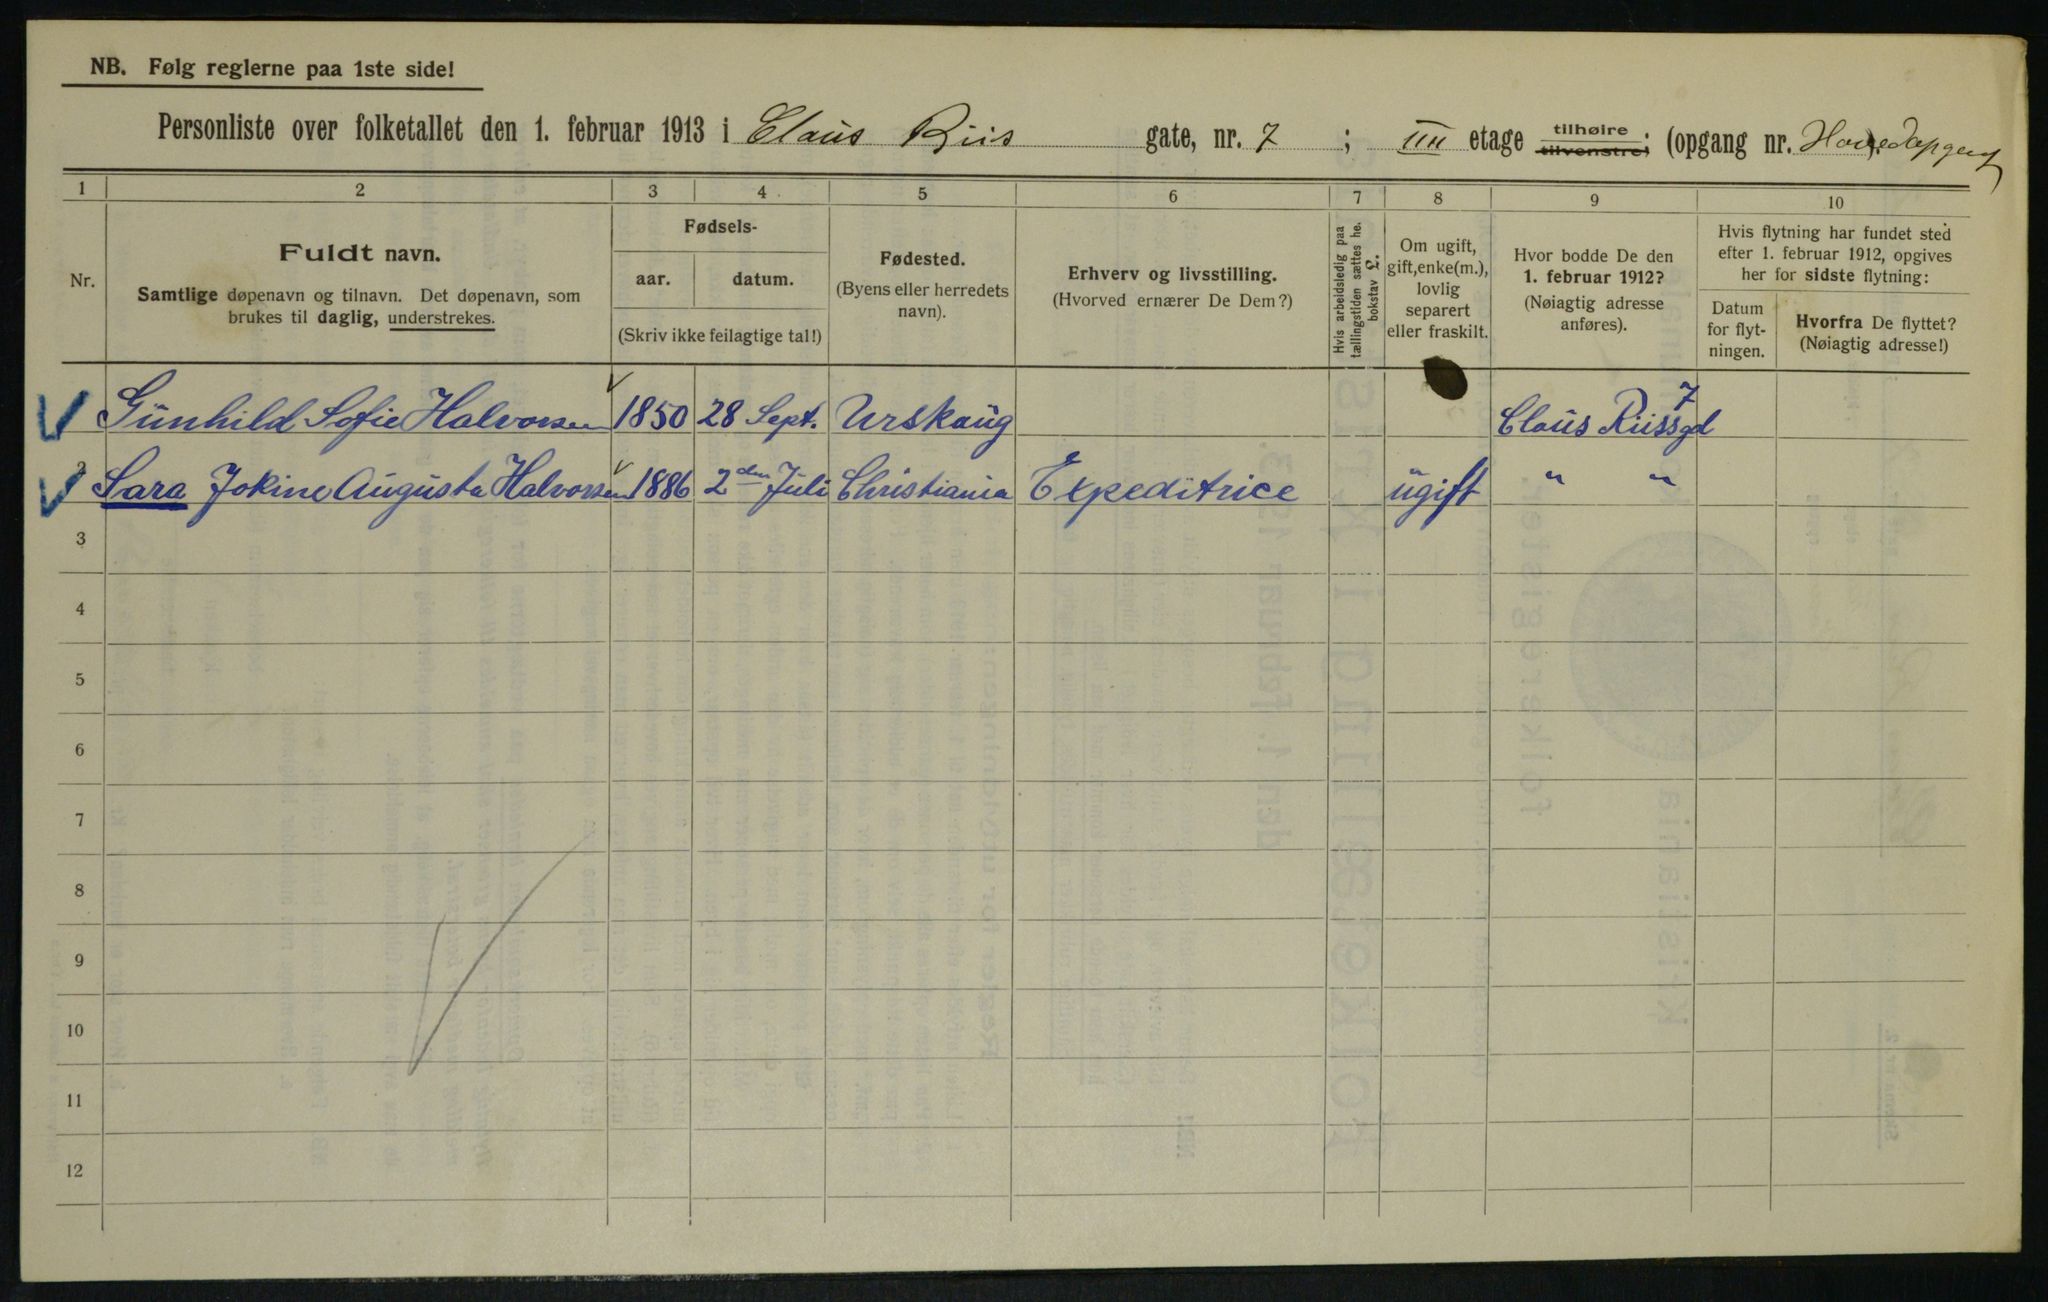 NB. Følg reglerne paa 1ste side!
Personliste over folketallet den 1. februar 1913 i Claus Riis gate, nr. 7 ; IIII etage tilhøire tilvenstre; (opgang nr. Hovedopgang
1 2 3 4 5 6 7 8 9 10
Nr.
Fuldt navn.
Samtlige døpenavn og tilnavn. Det døpenavn, som
brukes til daglig, understrekes.
Fødsels-
aar. datum.
(Skriv ikke feilagtige tal!)
Fødested.
(Byens eller herredets
navn).
Erhverv og livsstilling.
(Hvorved ernærer De Dem?)
Hvis arbeidsledig paa
tællingstiden sættes he.
bokstav L.
Om ugift,
gift, enke(m.),
lovlig
separert
eller fraskilt.
Hvor bodde De den
1. februar 1912?
(Nøiagtig adresse
anføres).
Hvis flytning har fundet sted
efter 1. februar 1912, opgives
her for sidste flytning:
Datum
for flyt-
ningen.
Hvorfra De flyttet?
(Nøiagtig adresse!)
Gunhild Sofie Halvorsen 1850 28 Sept. Urskaug Claus Riissgd 7
2 Sara Jokine Augusta Halvorsen 1886 2den Juli Christiania Expeditrice ugift " "
3
4
5
6
7
8
9
10
11
12